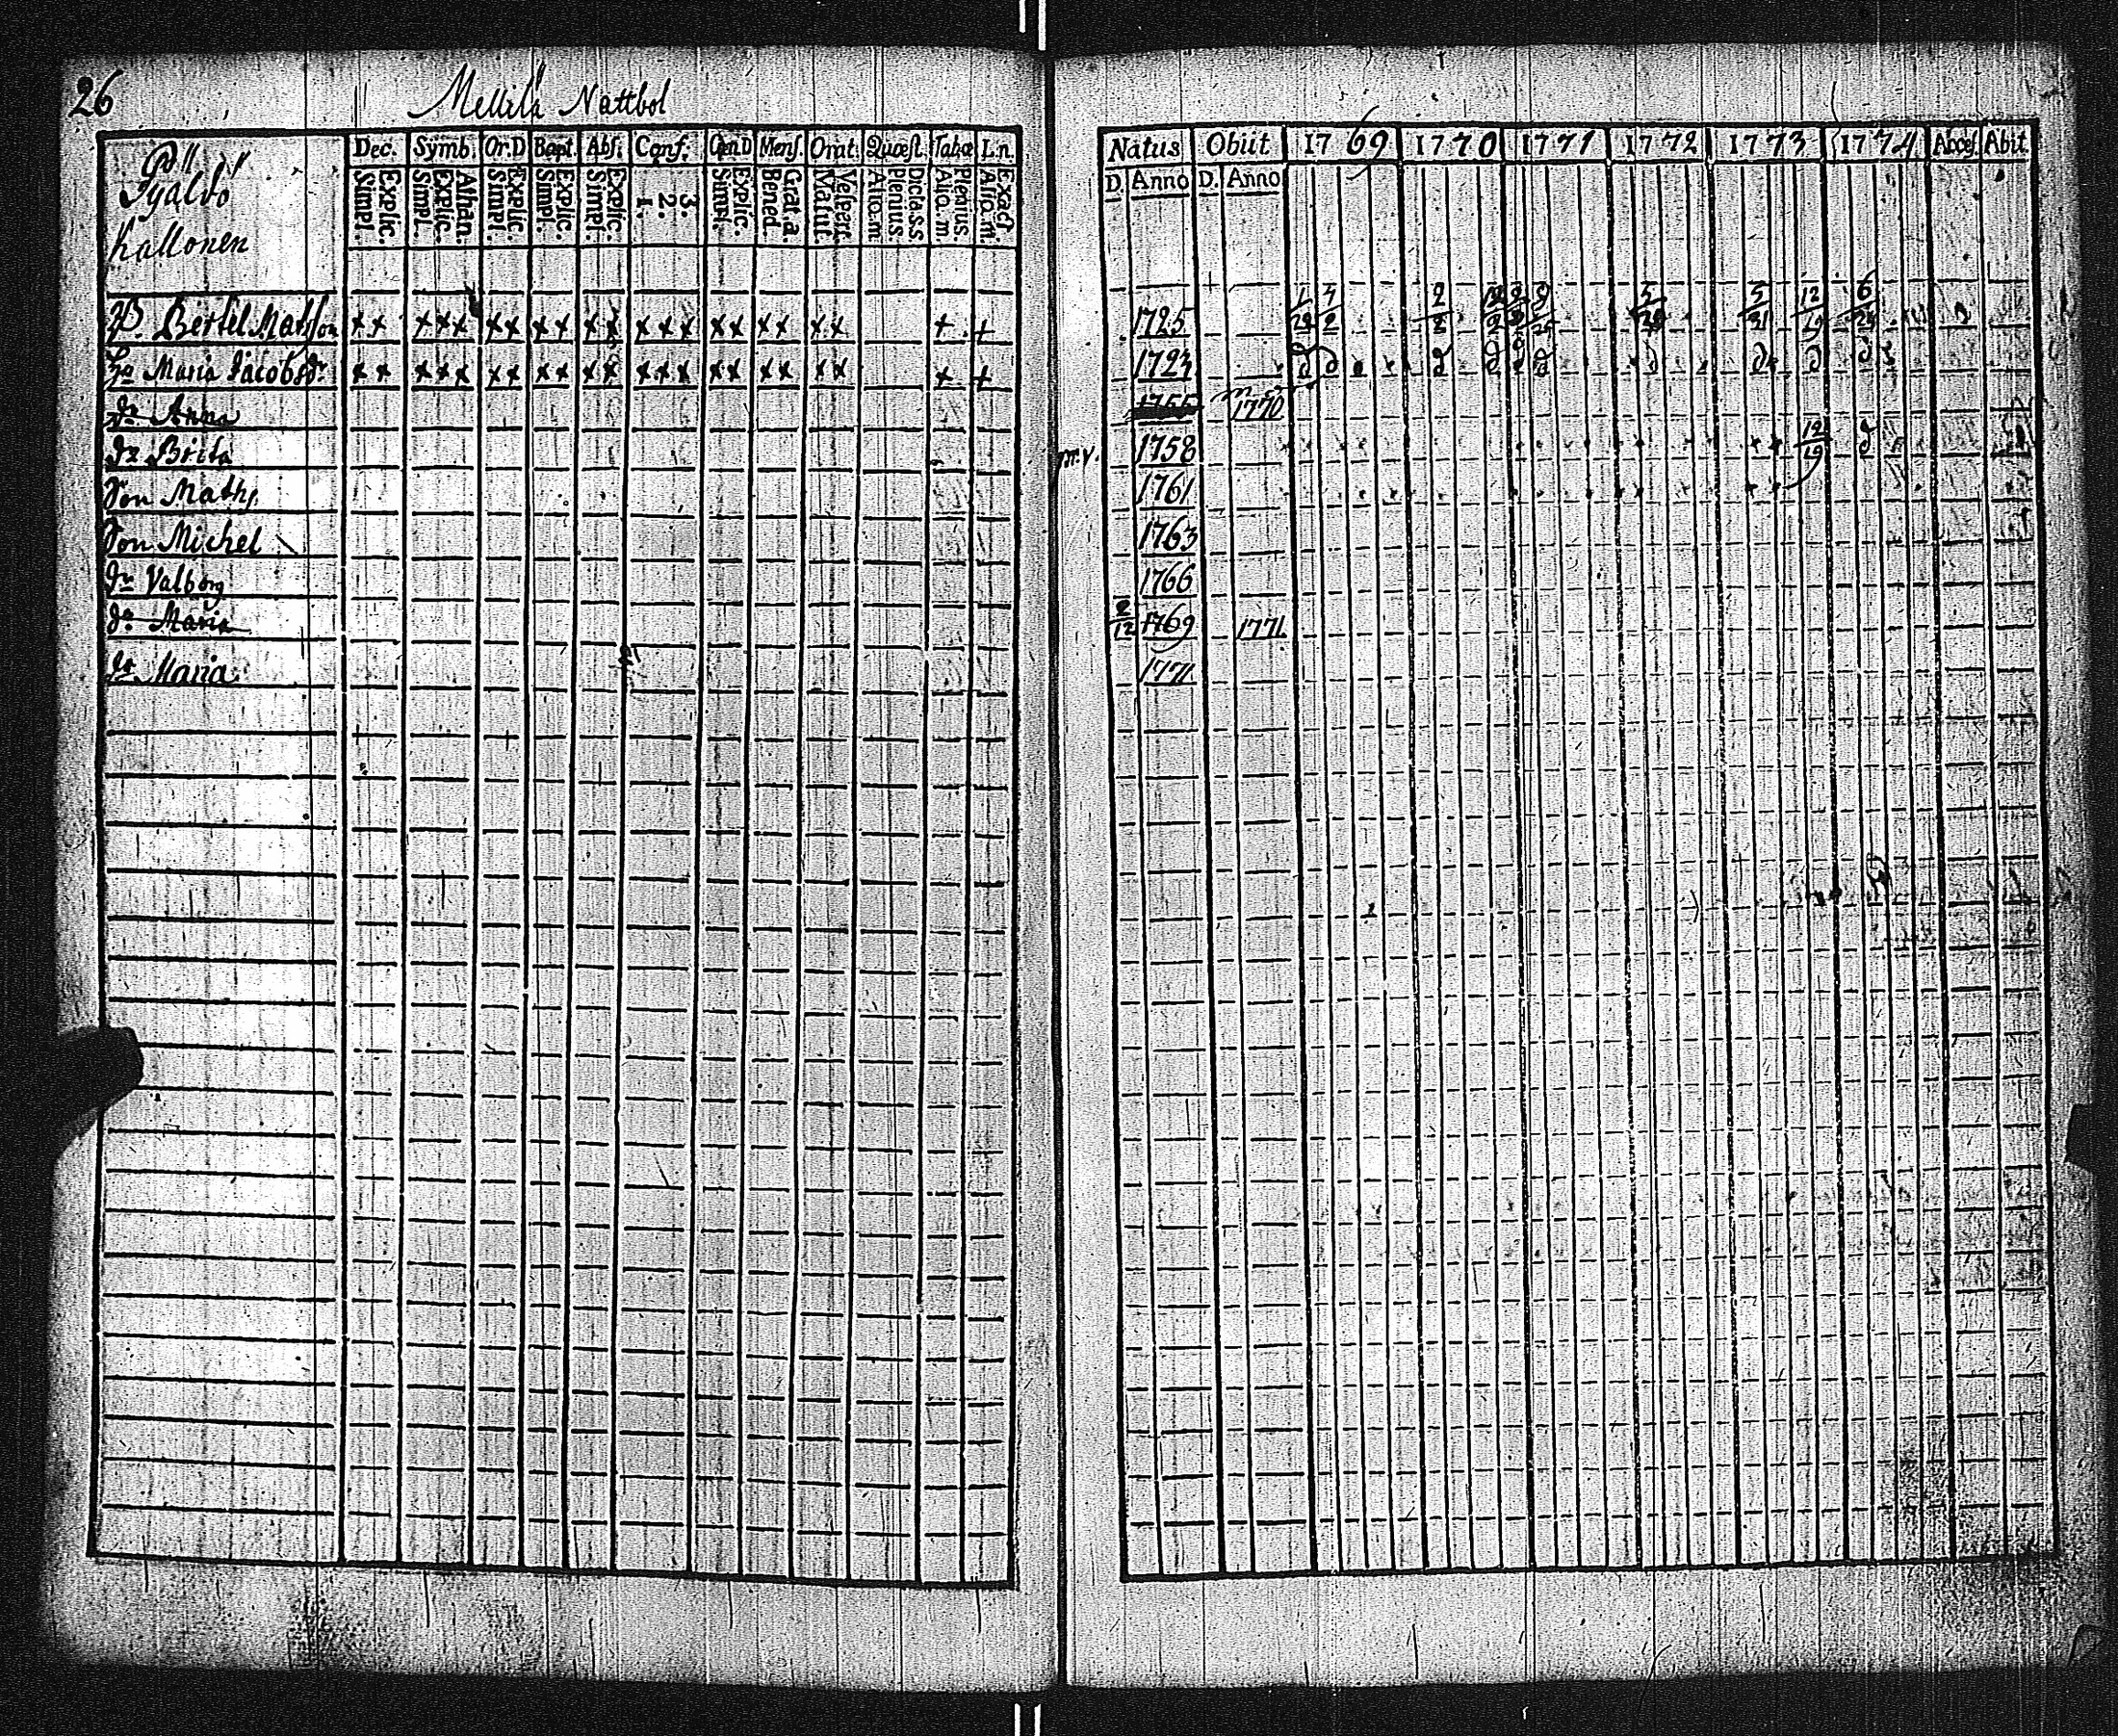 26
Mellilä Nattbol
Dec. Symb. Or.D Bapt. Abs. Conf. Cœn.D Mens. Orat. Quæst. Tabæ L.n.
Explic. Simpl. Athan. Explic. Simpl. Explic. Simpl. Explic. Simpl. Explic. Simpl. 3. 2. 1. Explic. Simpl. Grat. a Bened. Vespert. Matut. Plenius. Aliq.m Plenius. Aliq.m Exact Aliq.m
Kallonen
Bertel Matsson x x x x x x x x x x x x x x x x x x x x + +
Maria Jacobsdr x x x x x x x x x x x x x x x x x x x x + +
dr Anna
dr Brita
Son Maths
Son Michel
dr Valborg
dr Maria
dr Maria
Natus Obiit 1769 1770 1771 1772 1773 1774 Acces. Abit
D. Anno D. Anno
1725
1723
1755 1770
m.v. 1758 12/19
1761
1763
1766
2/12 1769 1771
1771